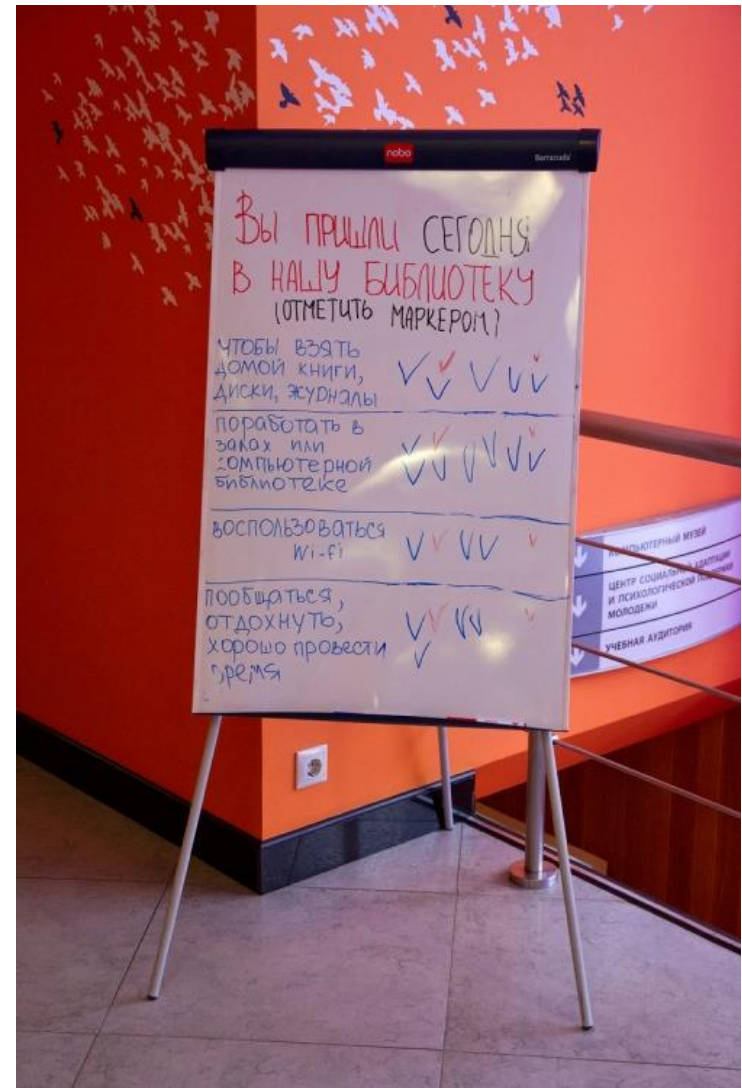 nobo
Barracuda
Вы пришли сегодня
в нашу библиотеку
(отметить маркером)
чтобы взять
домой книги,
диски, журналы
поработать в
залах или
компьютерной
библиотеке
воспользоваться
Wi-Fi
пообщаться,
отдохнуть,
хорошо провести
время
КОМПЬЮТЕРНЫЙ МУЗЕЙ
ЦЕНТР СОЦИАЛЬНОЙ АДАПТАЦИИ
И ПСИХОЛОГИЧЕСКОЙ ПОДДЕРЖКИ
МОЛОДЕЖИ
УЧЕБНАЯ АУДИТОРИЯ